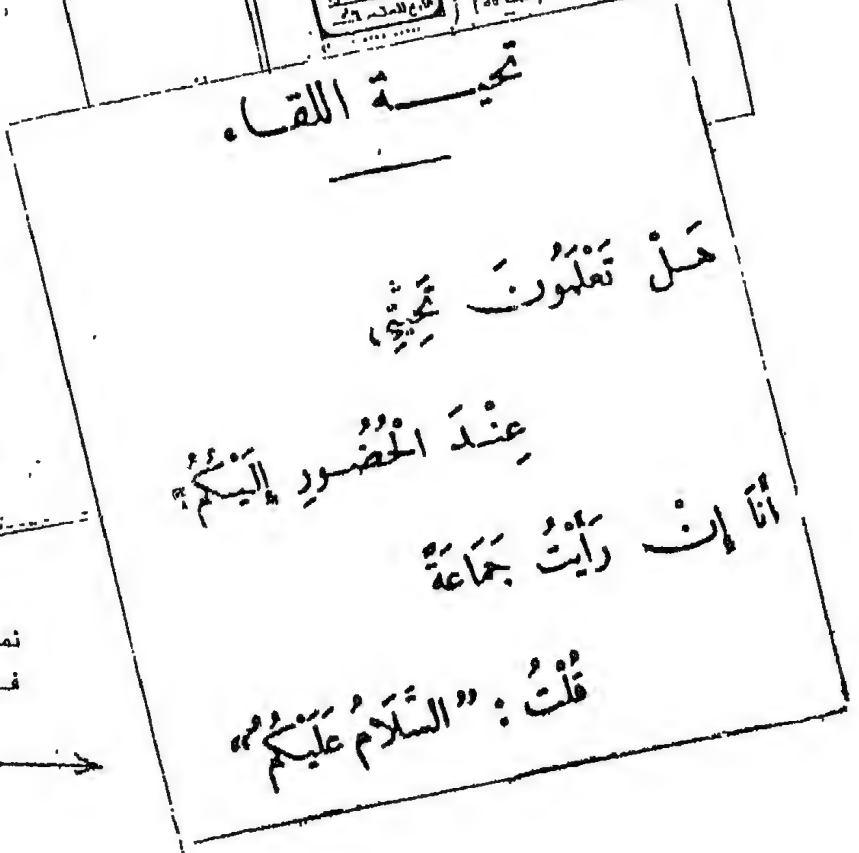 تحيـــة اللقـاء
هَـلْ تَعْلَمُونَ تَحِيَّتِي
عِنْـدَ الْحُضُـورِ إِلَيْـكُمُ
أَنَا إِنْ رَأَيْتُ جَمَاعَةً
قُلْتُ : "السَّلَامُ عَلَيْكُمُ"